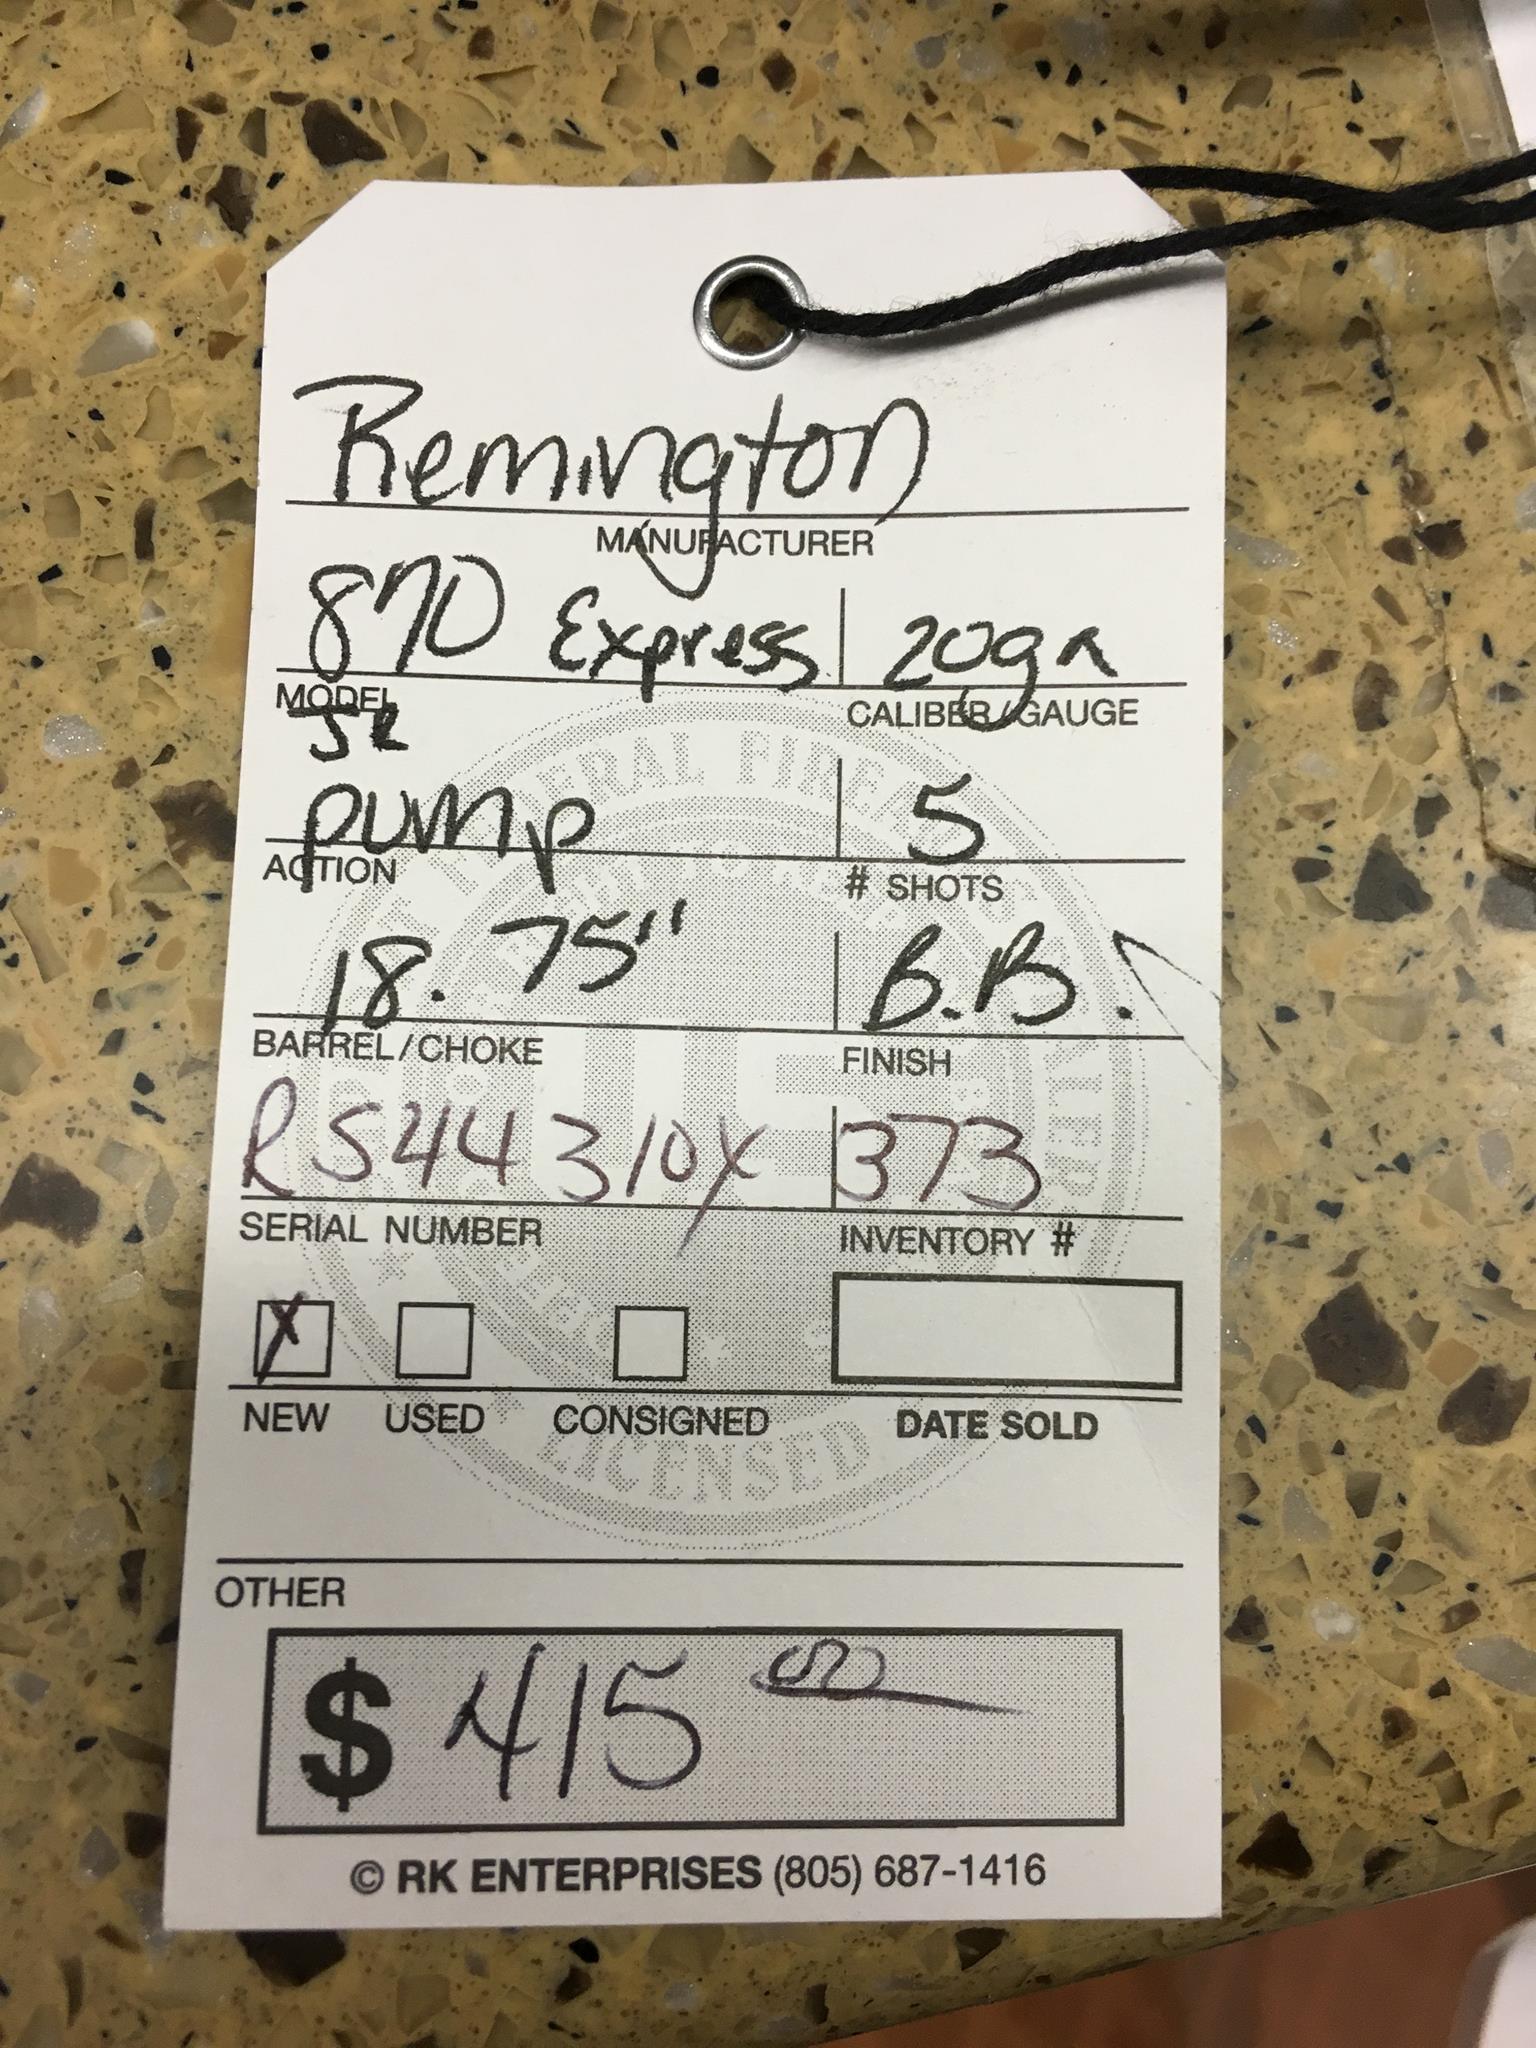 Remington
MANUFACTURER
870 Express 20ga
MODEL CALIBER/GAUGE
JR
pump 5
ACTION # SHOTS
18.75" B.B.
BARREL/CHOKE FINISH
RS44310X 373
SERIAL NUMBER INVENTORY #
X
NEW USED CONSIGNED DATE SOLD
LICENSED
OTHER
$ 415 00
© RK ENTERPRISES (805) 687-1416